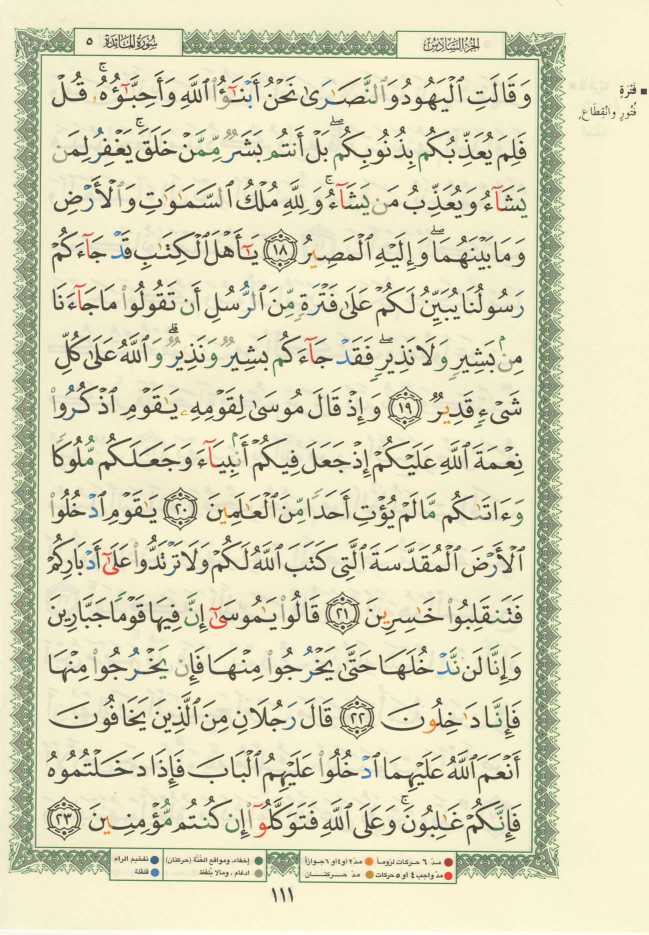 الجزء السادس
سورة المائدة ٥
وَقَالَتِ ٱلْيَهُودُ وَٱلنَّصَٰرَىٰ نَحْنُ أَبْنَٰٓؤُا۟ ٱللَّهِ وَأَحِبَّٰٓؤُهُۥ ۚ قُلْ
فَلِمَ يُعَذِّبُكُم بِذُنُوبِكُم ۖ بَلْ أَنتُم بَشَرٌ مِّمَّنْ خَلَقَ ۚ يَغْفِرُ لِمَن
يَشَآءُ وَيُعَذِّبُ مَن يَشَآءُ ۚ وَلِلَّهِ مُلْكُ ٱلسَّمَٰوَٰتِ وَٱلْأَرْضِ
وَمَا بَيْنَهُمَا ۖ وَإِلَيْهِ ٱلْمَصِيرُ ١٨ يَٰٓأَهْلَ ٱلْكِتَٰبِ قَدْ جَآءَكُمْ
رَسُولُنَا يُبَيِّنُ لَكُمْ عَلَىٰ فَتْرَةٍ مِّنَ ٱلرُّسُلِ أَن تَقُولُوا۟ مَا جَآءَنَا
مِنۢ بَشِيرٍ وَلَا نَذِيرٍ ۖ فَقَدْ جَآءَكُم بَشِيرٌ وَنَذِيرٌ ۗ وَٱللَّهُ عَلَىٰ كُلِّ
شَىْءٍ قَدِيرٌ ١٩ وَإِذْ قَالَ مُوسَىٰ لِقَوْمِهِۦ يَٰقَوْمِ ٱذْكُرُوا۟
نِعْمَةَ ٱللَّهِ عَلَيْكُمْ إِذْ جَعَلَ فِيكُمْ أَنۢبِيَآءَ وَجَعَلَكُم مُّلُوكًا
وَءَاتَىٰكُم مَّا لَمْ يُؤْتِ أَحَدًا مِّنَ ٱلْعَٰلَمِينَ ٢٠ يَٰقَوْمِ ٱدْخُلُوا۟
ٱلْأَرْضَ ٱلْمُقَدَّسَةَ ٱلَّتِى كَتَبَ ٱللَّهُ لَكُمْ وَلَا تَرْتَدُّوا۟ عَلَىٰٓ أَدْبَارِكُمْ
فَتَنقَلِبُوا۟ خَٰسِرِينَ ٢١ قَالُوا۟ يَٰمُوسَىٰٓ إِنَّ فِيهَا قَوْمًا جَبَّارِينَ
وَإِنَّا لَن نَّدْخُلَهَا حَتَّىٰ يَخْرُجُوا۟ مِنْهَا فَإِن يَخْرُجُوا۟ مِنْهَا
فَإِنَّا دَٰخِلُونَ ٢٢ قَالَ رَجُلَانِ مِنَ ٱلَّذِينَ يَخَافُونَ
أَنْعَمَ ٱللَّهُ عَلَيْهِمَا ٱدْخُلُوا۟ عَلَيْهِمُ ٱلْبَابَ فَإِذَا دَخَلْتُمُوهُ
فَإِنَّكُمْ غَٰلِبُونَ ۚ وَعَلَى ٱللَّهِ فَتَوَكَّلُوٓا۟ إِن كُنتُم مُّؤْمِنِينَ ٢٣
فَتْرَةٍ
فُتُورٍ وانْقِطَاعٍ
مدّ ٦ حركات لزوماً مدّ ٢ أو ٤ أو ٦ جوازاً
مدّ واجب ٤ أو ٥ حركات مدّ حركتان
إخفاء، ومواقع الغُنَّة (حركتان)
ادغام، ومالا يُلفَظ
تفخيم الراء
قلقلة
١١١